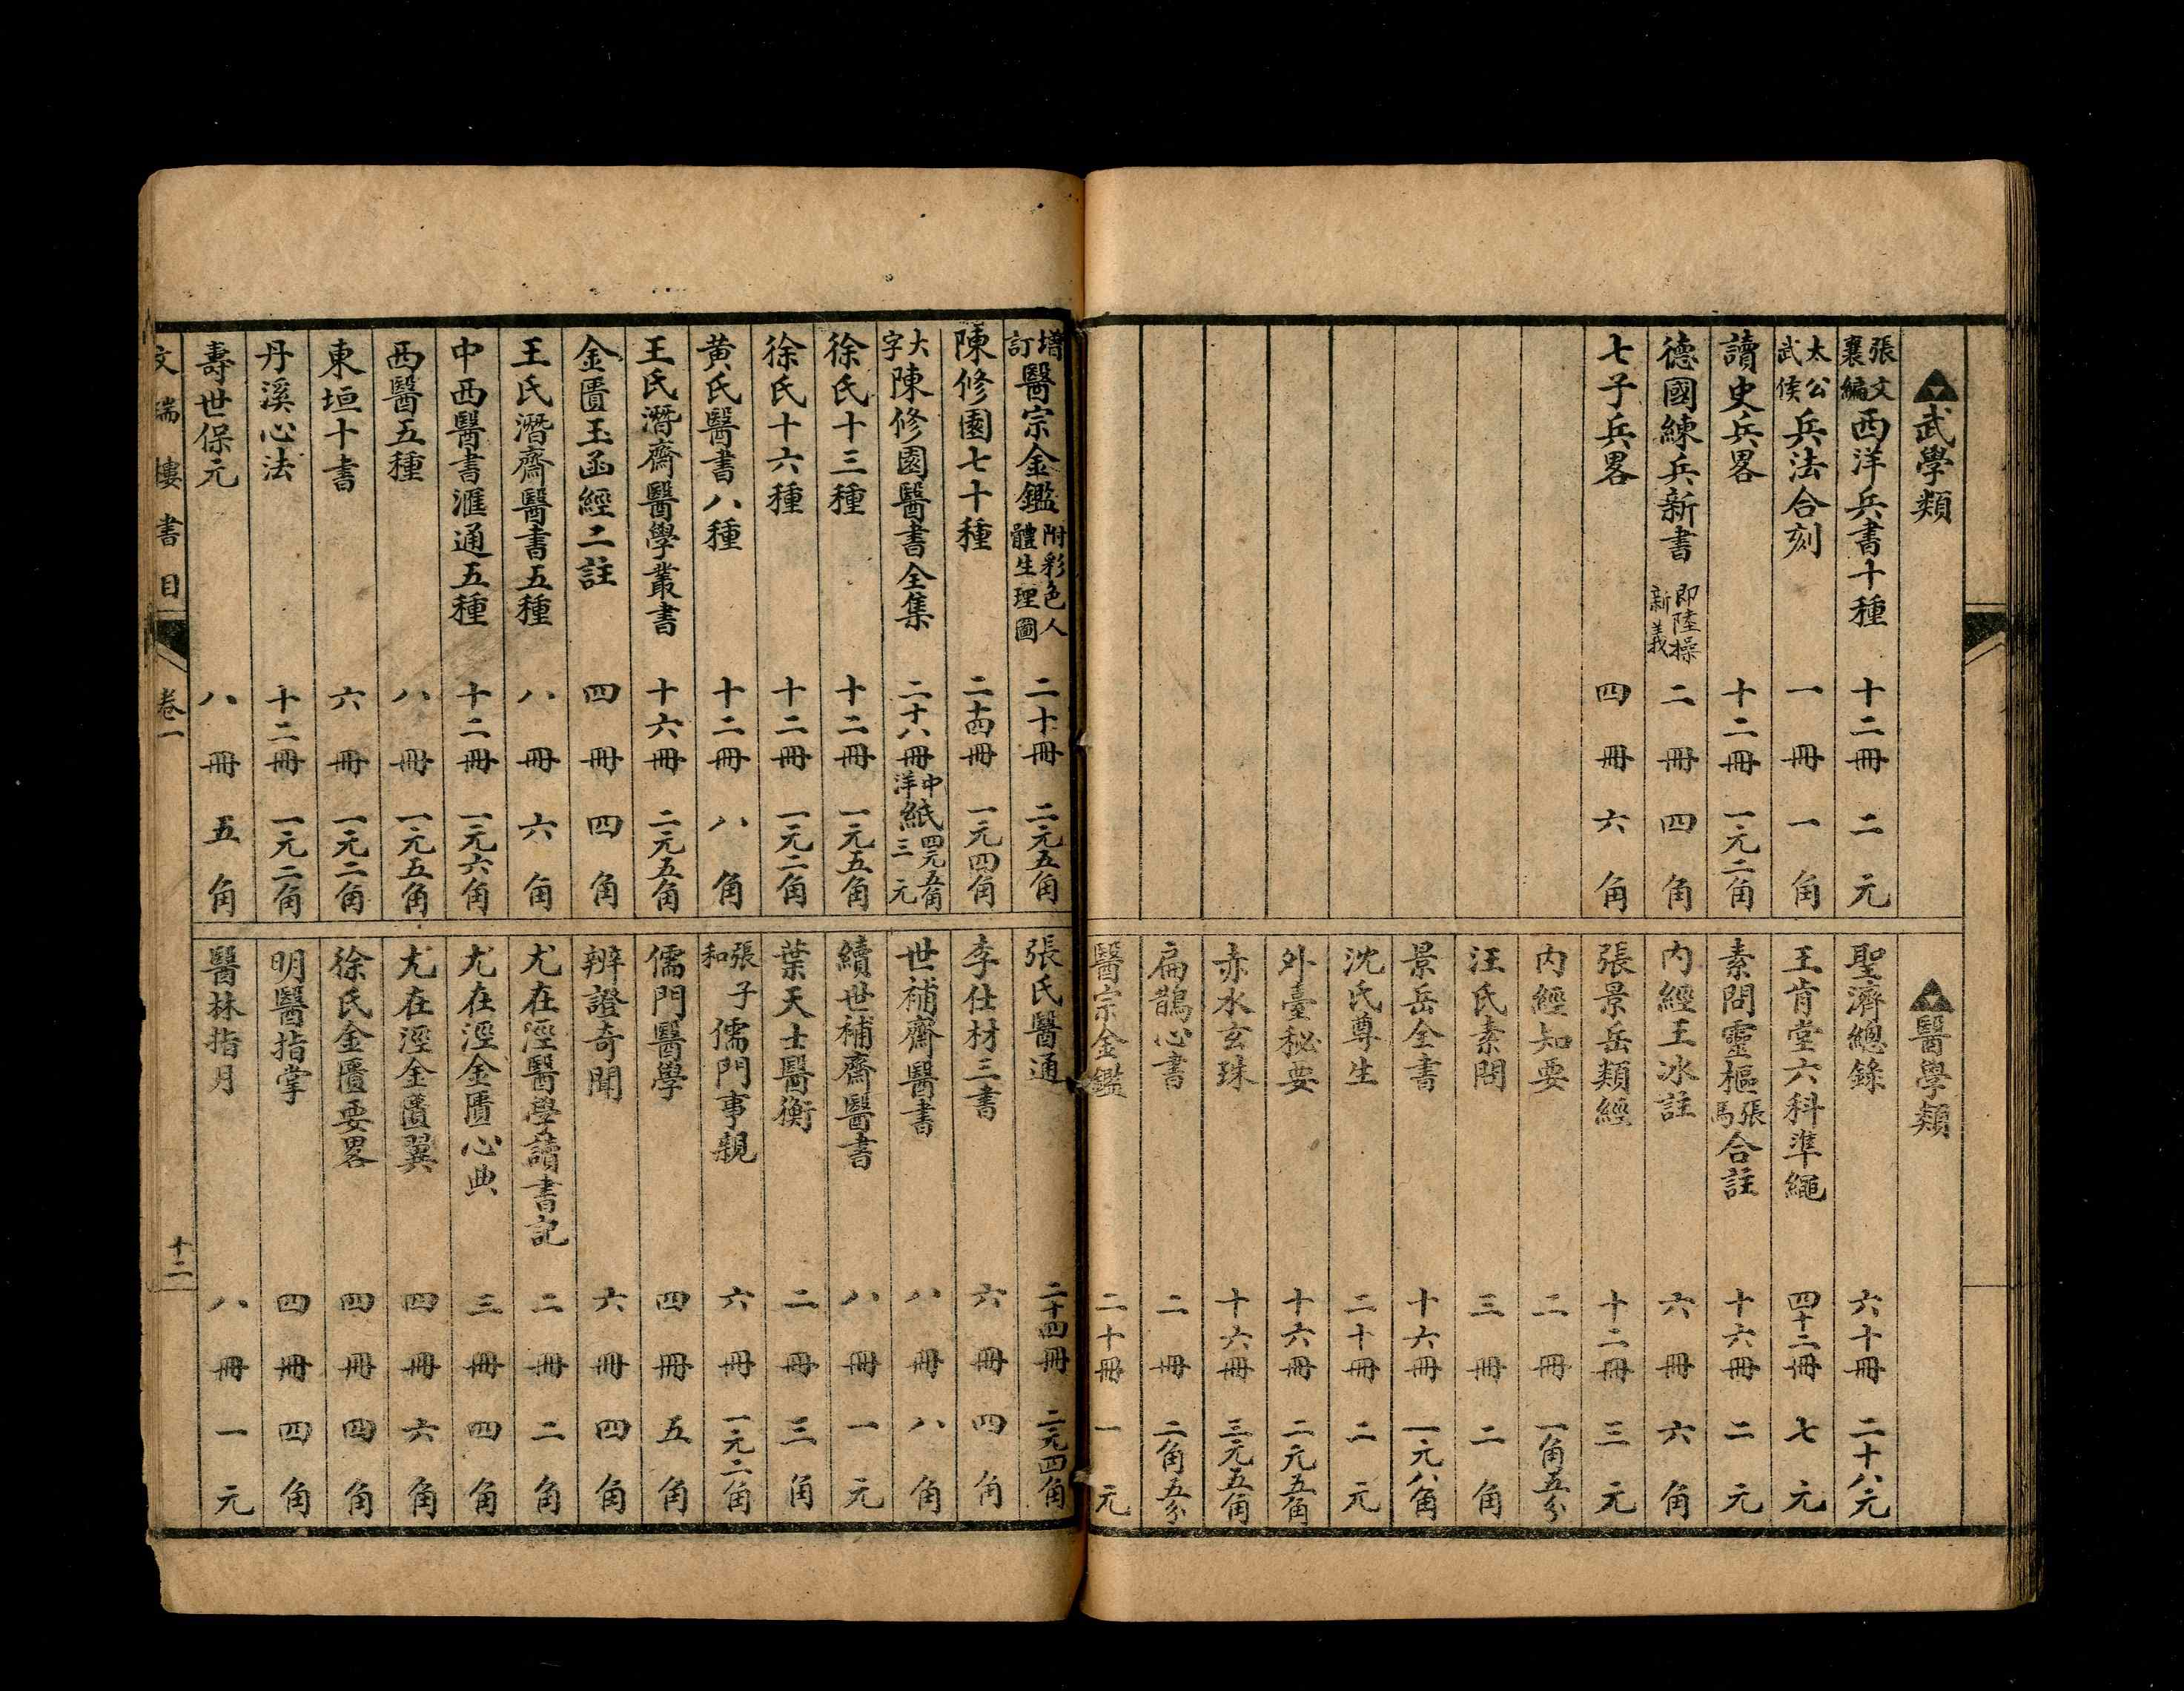 武學類
張文襄編西洋兵書十種 十二冊 二元
太公武侯兵法合刻 一冊 一角
讀史兵畧 十二冊 一元二角
德國練兵新書 即陸操新義 二冊 四角
七子兵畧 四冊 六角
醫學類
聖濟總錄 六十冊 二十八元
王肯堂六科準繩 四十二冊 七元
素問靈樞張馬合註 十六冊 二元
内經王冰註 六冊 六角
張景岳類經 十二冊 三元
内經知要 二冊 一角五分
汪氏素問 三冊 二角
景岳全書 十六冊 一元八角
沈氏尊生 二十冊 二元
外臺秘要 十六冊 二元五角
赤水玄珠 十六冊 三元五角
扁鵲心書 二冊 二角五分
醫宗金鑑 二十冊 一元
增訂醫宗金鑑 附彩色人體生理圖 二十冊 二元五角
陳修園七十種 二十四冊 一元四角
大字陳修園醫書全集 二十八冊 中洋紙 四元五角 三元
徐氏十三種 十二冊 一元五角
徐氏十六種 十二冊 一元二角
黃氏醫書八種 十二冊 八角
王氏潛齋醫學叢書 十六冊 二元五角
金匱玉函經二註 四冊 四角
王氏潛齋醫書五種 八冊 六角
中西醫書滙通五種 十二冊 一元六角
西醫五種 八冊 一元五角
東垣十書 六冊 一元二角
丹溪心法 十二冊 一元二角
壽世保元 八冊 五角
張氏醫通 二十四冊 二元四角
李仕材三書 六冊 四角
世補齋醫書 八冊 八角
續世補齋醫書 八冊 一元
葉天士醫衡 二冊 三角
張子和儒門事親 六冊 一元二角
儒門醫學 四冊 五角
辨證奇聞 六冊 四角
尤在涇醫學讀書記 二冊 二角
尤在涇金匱心典 三冊 四角
尤在涇金匱翼 四冊 六角
徐氏金匱要畧 四冊 四角
明醫指掌 四冊 四角
醫林指月 八冊 一元
文瑞樓書目 卷一 十二